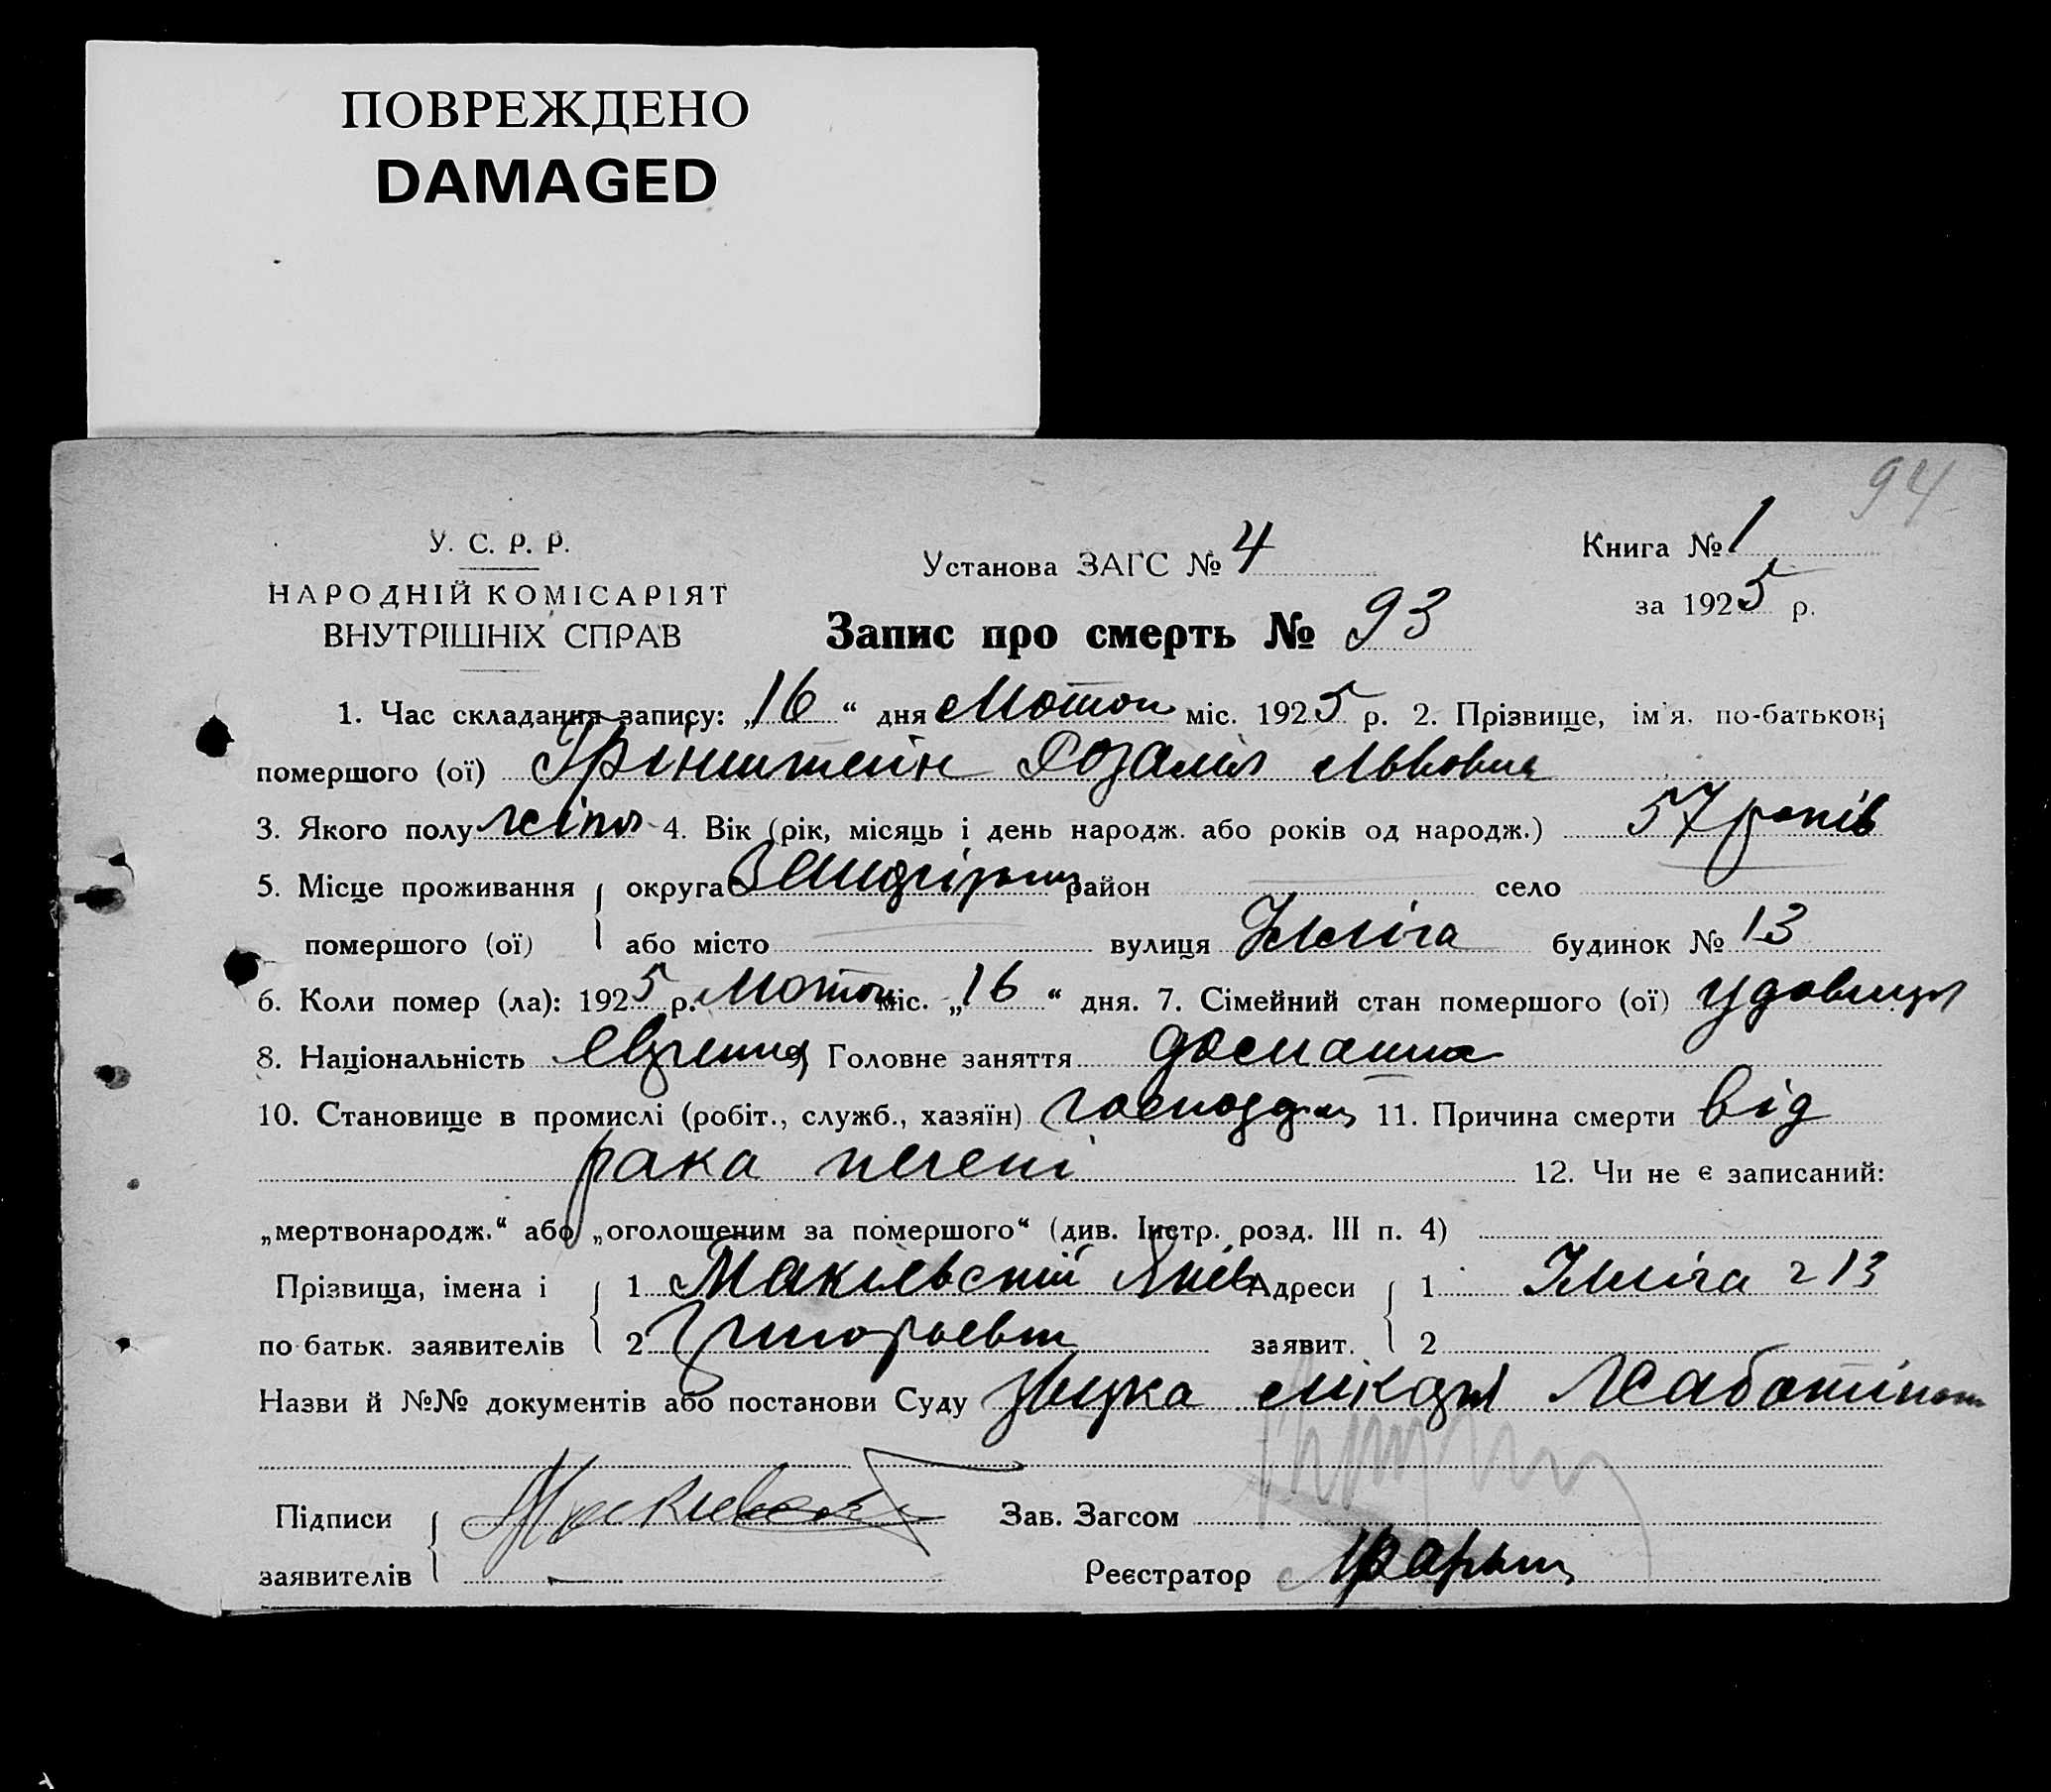 ПОВРЕЖДЕНО
DAMAGED
94
У. С. Р. Р.
НАРОДНІЙ КОМІСАРІЯТ
ВНУТРІШНІХ СПРАВ
Установа ЗАГС № 4
Книга № 1
за 1925 р.
Запис про смерть № 93
1. Час складання запису: „16“ дня Лютого міс. 1925 р. 2. Прізвище, ім'я, по-батькові
помершого (ої) Грінштейн Розалія Львовна
3. Якого полу жіноч 4. Вік (рік, місяць і день народж. або років од народж.) 57 років
5. Місце проживання округа район село
помершого (ої) або місто вулиця Ілліча будинок № 13
6. Коли помер (ла): 1925 р. Лютого міс. „16“ дня. 7. Сімейний стан помершого (ої) удовиця
8. Національність Головне заняття домашна
10. Становище в промислі (робіт., служб., хазяїн) господар 11. Причина смерти від
рака печені 12. Чи не є записаний:
„мертвонародж.“ або „оголошеним за помершого“ (див. Інстр. розд. III п. 4)
Прізвища, імена і 1 Макієвській Яків Адреси 1 Ілліча 13
по-батьк. заявителів 2 Григорьевич заявит. 2
Назви й №№ документів або постанови Суду лікаря
Підписи Зав. Загсом
заявителів Реєстратор